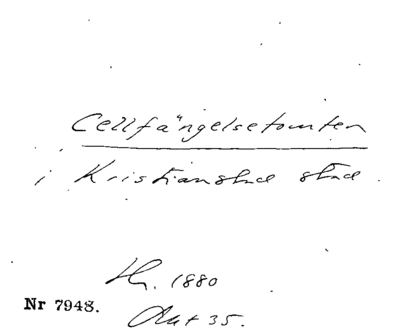 Cellfängelsetomten
i Kristianstad stad.
Nr 7948.
1880
35.